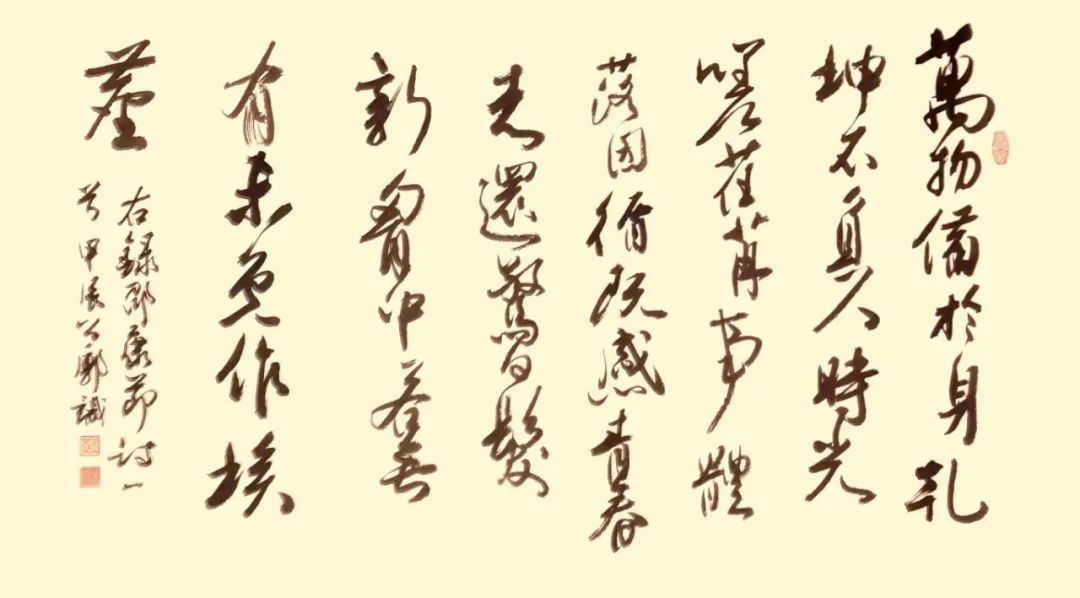 萬物備於身乾
坤不負人時光
嗟荏苒事體
落因循既感青春
老還驚白髮
新胷中若無
有未免作埃
塵
右錄邵康節詩一
首甲辰公識